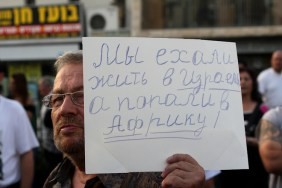 בועז חן
Мы ехали
жить в Израель
а попали в
Африку!